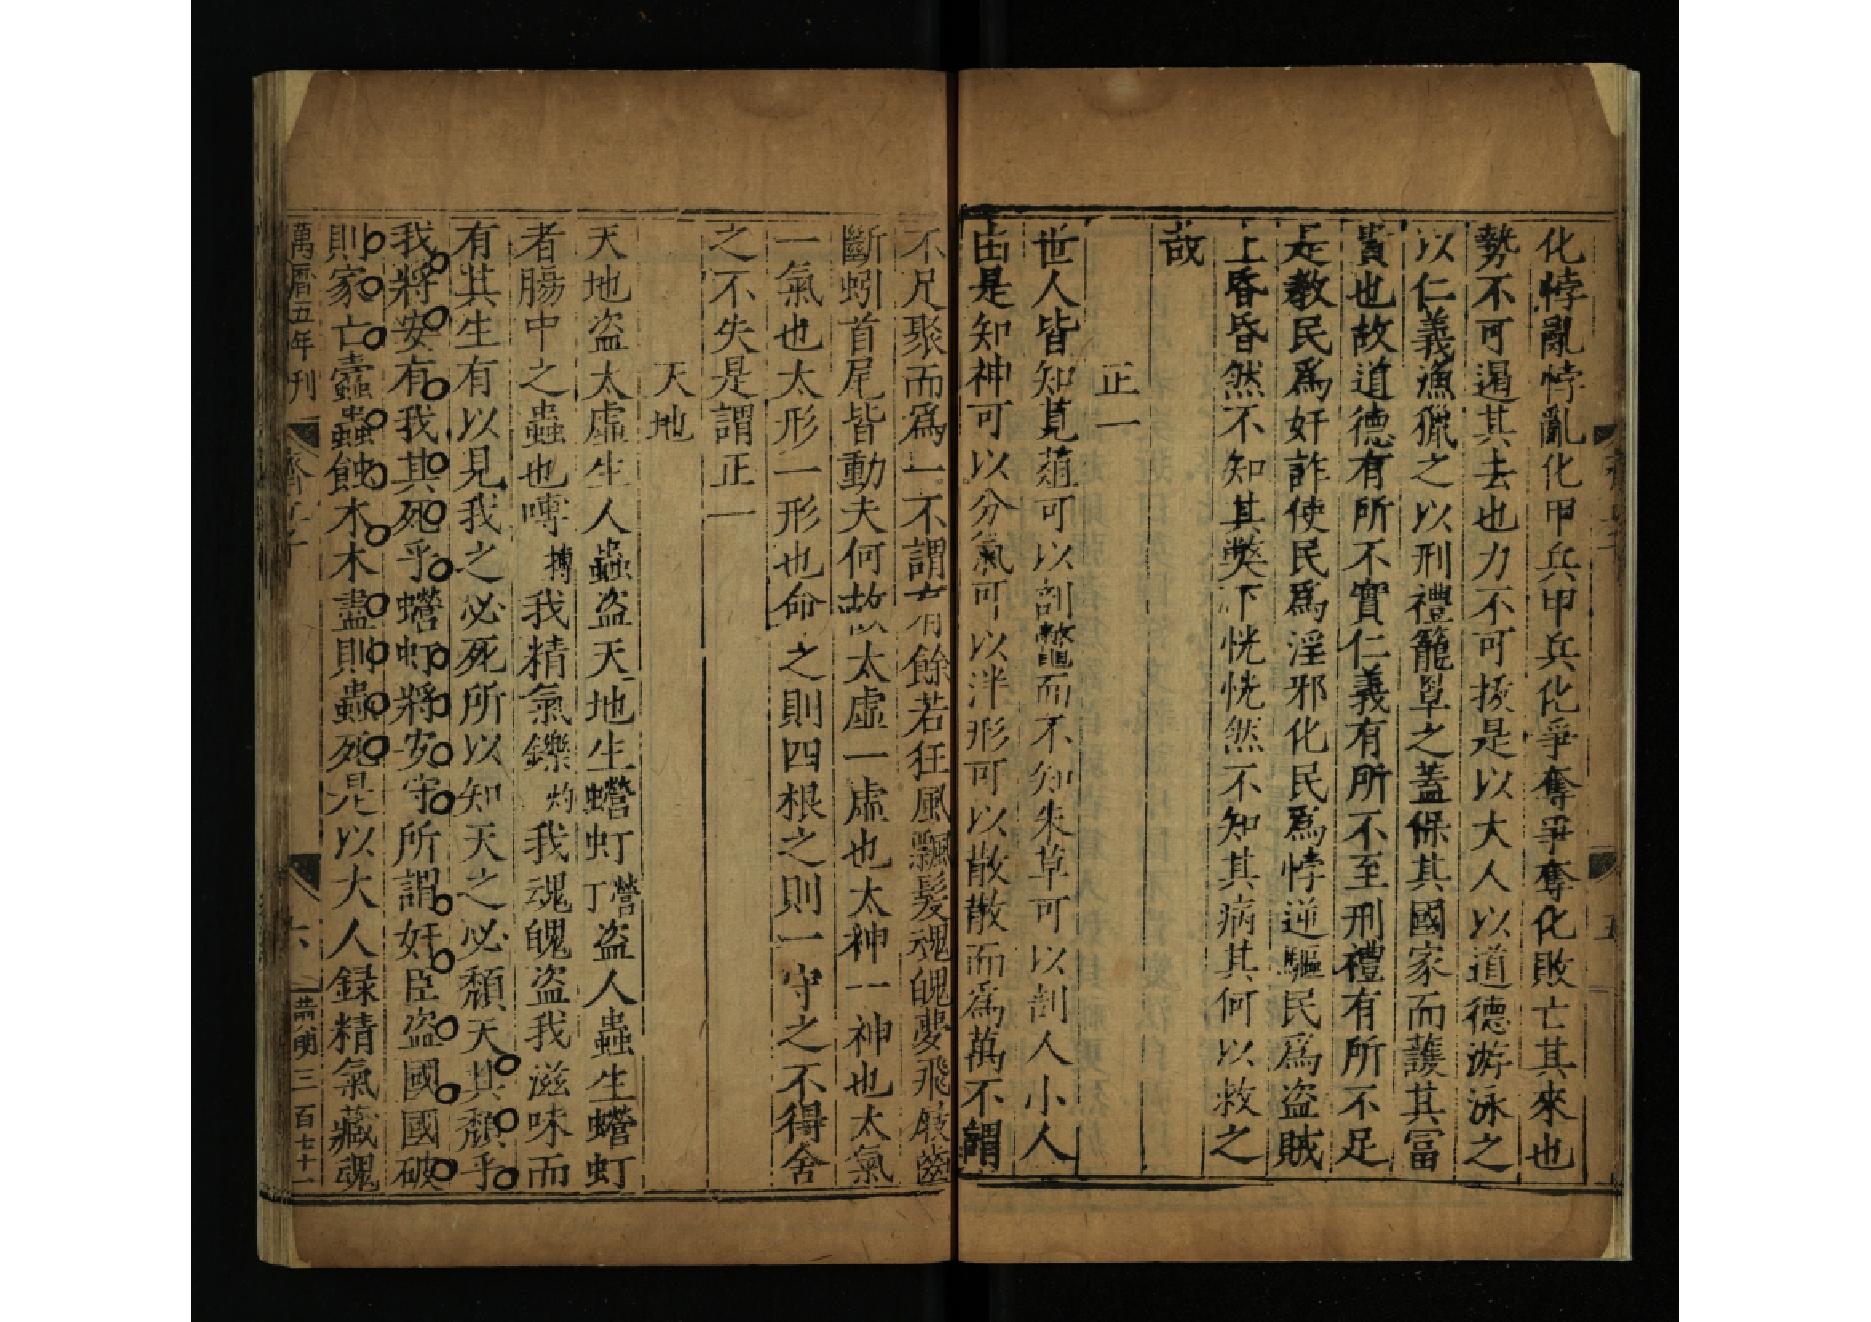 化悖亂悖亂化甲兵甲兵化爭奪爭奪化敗亡其來也
勢不可遏其去也力不可拔是以大人以道德游泳之
以仁義漁獵之以刑禮籠罩之蓋保其國家而護其冨
貴也故道德有所不實仁義有所不至刑禮有所不足
是教民爲奸詐使民爲淫邪化民爲悖逆驅民爲盜賊
上昏昏然不知其弊下恍恍然不知其病其何以救之
哉
正一
世人皆知莧䔧可以剖鼈而不知朱草可以剖人小人
由是知神可以分氣可以泮形可以散散而爲萬不謂
不足聚而爲一不謂有餘若狂風飄髮魂魄夢飛屐齒
斷蚓首尾皆動夫何故太虛一虛也太神一神也太氣
一氣也太形一形也命之則四根之則一守之不得舍
之不失是謂正一
天地
天地盜太虛生人蟲盜天地生蠮虰營丁盜人蟲生蠮虰
者腸中之蟲也嘷摶我精氣鑠灼我魂魄盜我滋味而
有其生有以見我之必死所以知天之必頹天其頹乎
我將安有我其死乎蠮虰將安守所謂奸臣盜國國破
則家亡蠹蟲蝕木木盡則蟲死是以大人録精氣藏魂
萬曆五年刊 齊丘子 六 三百七十一